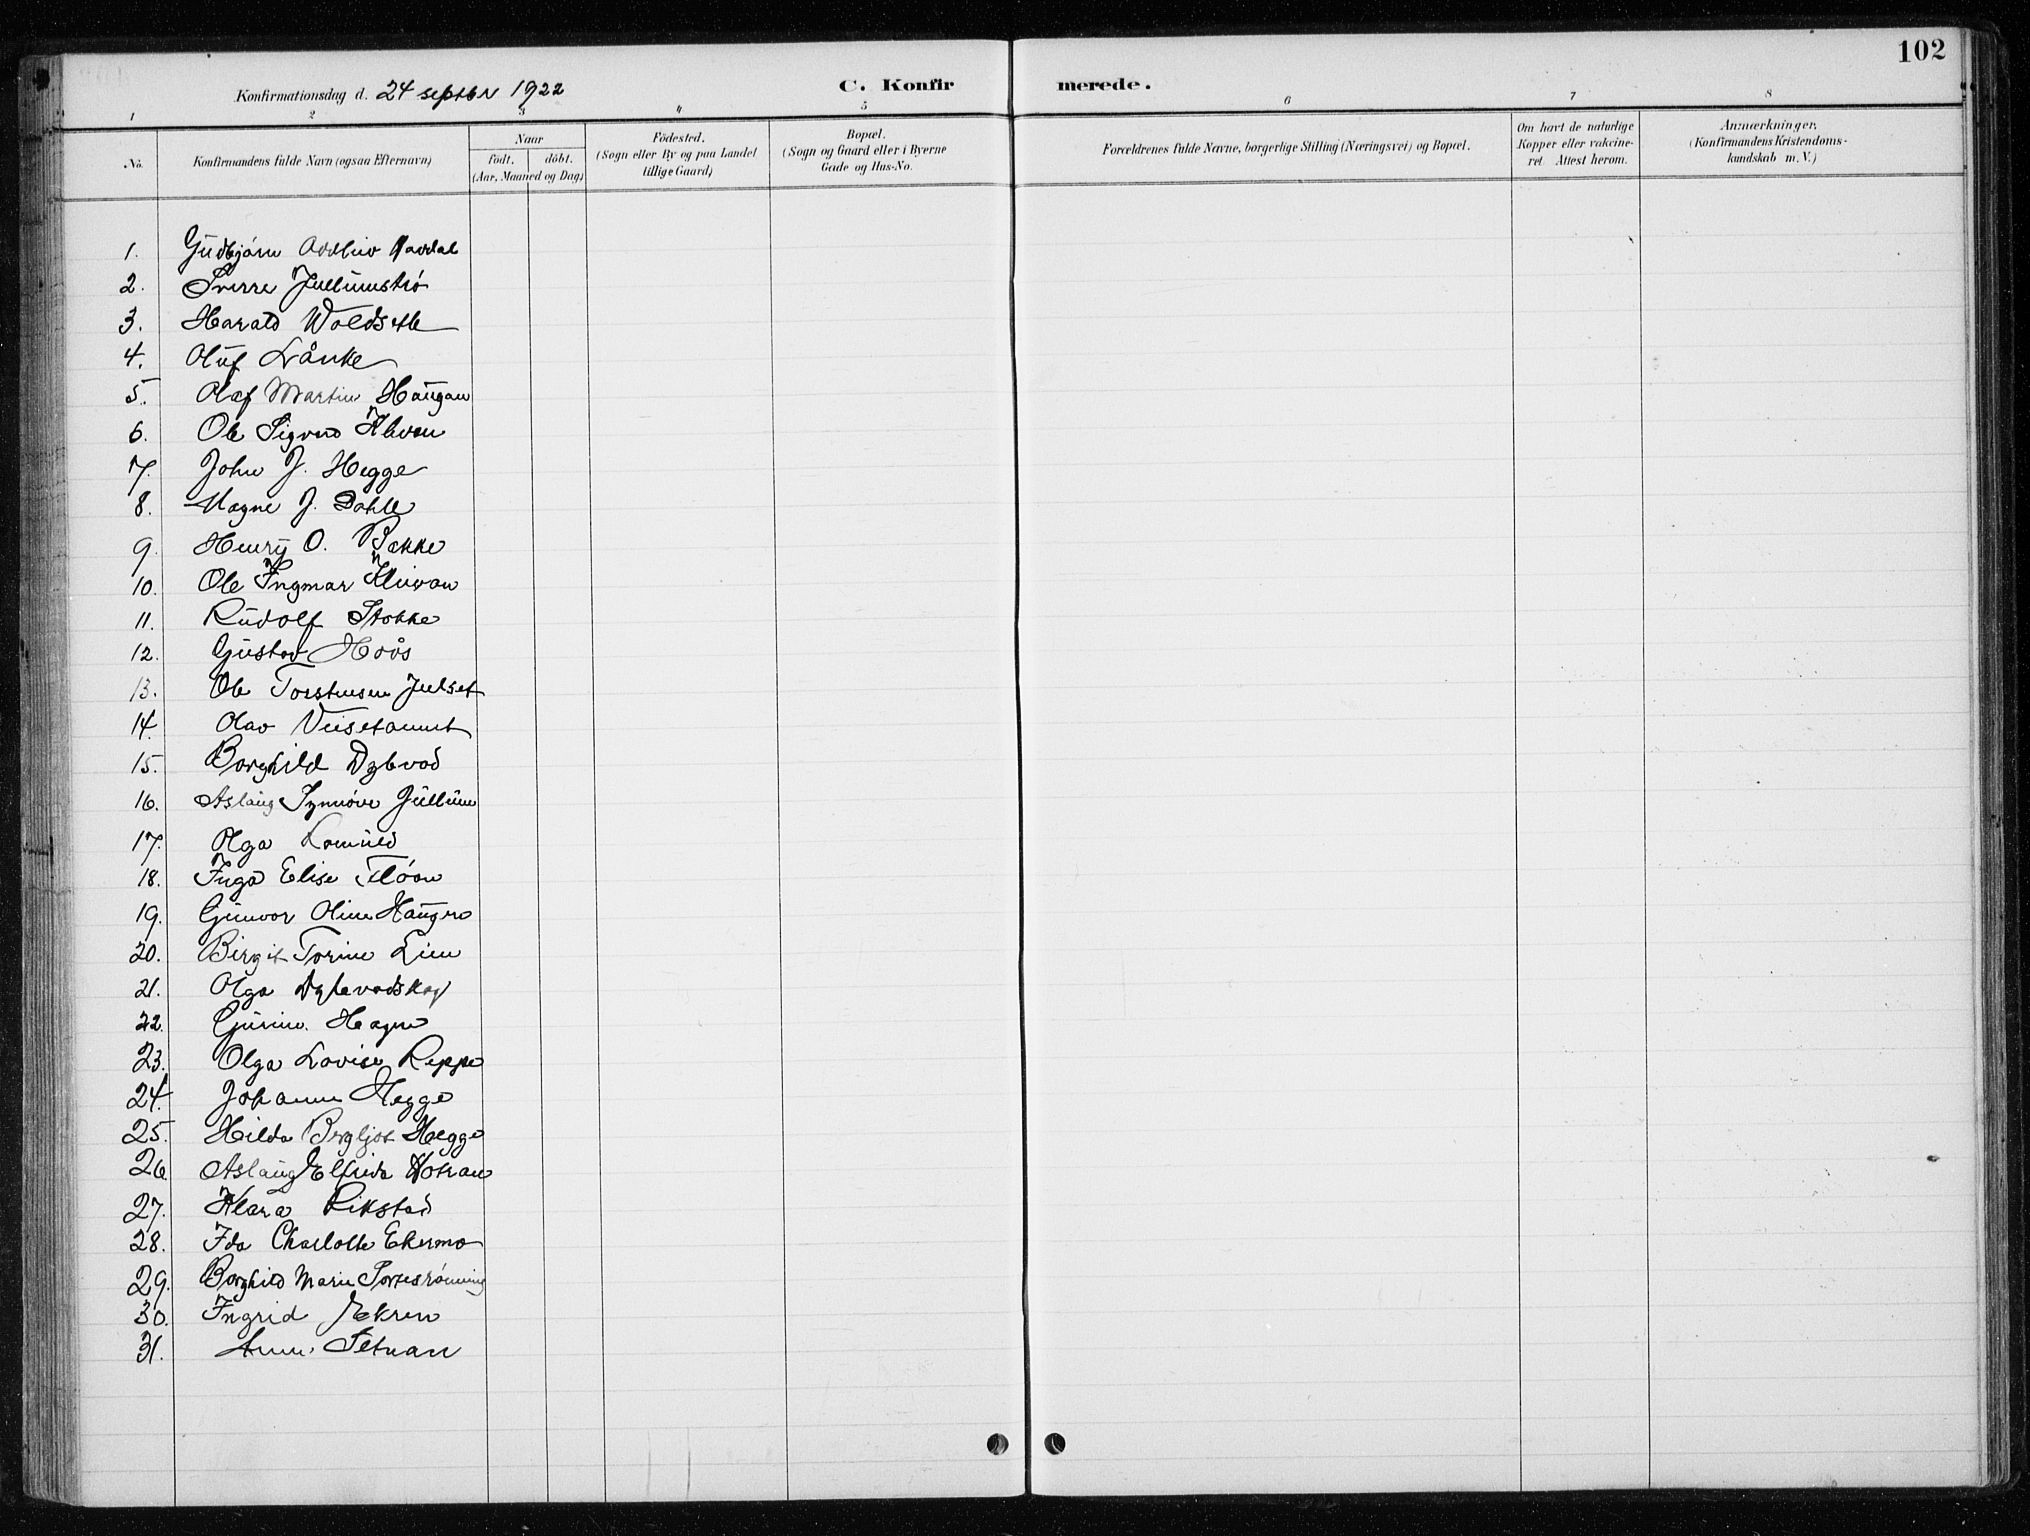 102
Konfirmationsdag d. 24 septbr 1922
C. Konfirmerede.
1 2 3 4 5 6 7 8
No.
Konfirmandens fulde Navn (ogsaa Efternavn)
Naar
født. døbt.
(Aar, Maaned og Dag)
Fødested.
(Sogn eller By og paa Landet
tillige Gaard)
Bopæl.
(Sogn og Gaard eller i Byerne
Gade og Hus-No.
Forældrenes fulde Navne, borgerlige Stilling (Næringsvei) og Bopæl.
Om havt de naturlige
Kopper eller vakcine-
ret. Attest herom.
Anmærkninger.
(Konfirmandens Kristendoms-
kundskab m. V.)
1. Gudbjørn
2. Sverre Jullumstrø
3. Harald Woldseth
4. Oluf Lånke
5. Olaf Martin Haugan
6. Ole Sigurd Kleven
7. John J. Hegge
8. Magne J. Dahle
9. Henry O. Bakke
10. Ole Ingmar Klüvan
11. Rudolf Stokke
12. Gustav Hoås
13. Ole Torstensen Julset
14. Olav Veisetaunet
15. Borghild Dybvad
16. Aslaug Synnøve Jullum
17. Olga Romuld
18. Inga Elise Fløan
19. Gunvor Oline Haugro
20. Birgit Torine Lien
21. Olga Dybvadskog
22. Gurine
23. Olga Lovise Reppe
24. Johanne Hegge
25. Hilda Bergljot Hegge
26. Aslaug Elfrida Hotran
27. Klara Rikstad
28. Ida Charlotte Ekermo
29. Borghild Marie
30. Ingrid Ekren
31. Anna Setnan